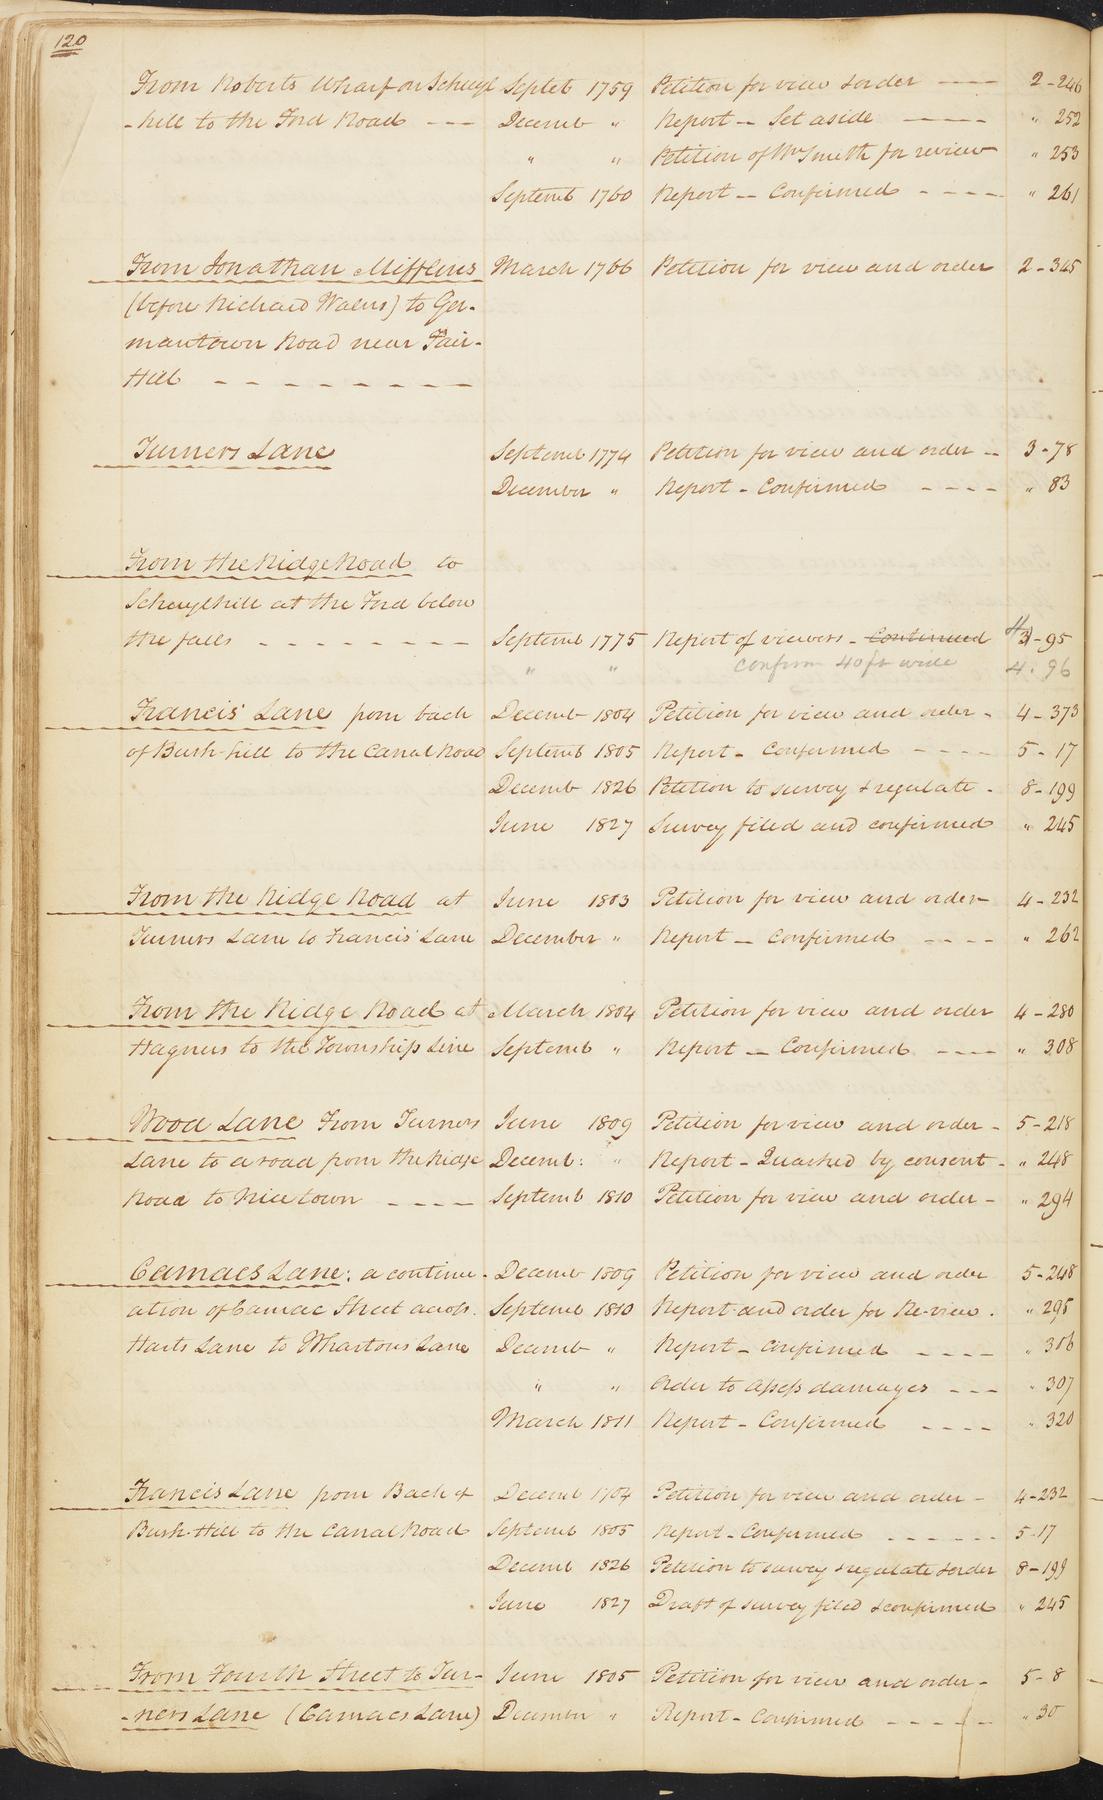 120
From Roberts Wharf on Schuyl Septeb 1759 Petition for view & order ---- 2-246
-hill to the Ford Road --- Decemb " Report - Set aside ---- " 252
" " Petition of Wm Smith for review " 253
Septemb 1760 Report - Confirmed ---- " 261
From Jonathan Mifflins March 1766 Petition for view and order 2-345
(before Richard Walns) to Ger-
mantown Road near Fair-
Hill ---------
Turners Lane Septemb 1774 Petition for view and order - 3-78
December " Report - Confirmed ---- " 83
From the Ridge Road to
Schuylkill at the Ford below
the falls ------- Septemb 1775 Report of viewers - Continued 3-95
" " Confirm 40 ft wide 4. 96
Francis' Lane from back Decemb 1804 Petition for view and order - 4-373
of Bush-hill to the Canal Road Septemb 1805 Report - Confirmed ---- 5-17
Decemb 1826 Petition to survey & regulate - 8-199
June 1827 Survey filed and confirmed " 245
From the Ridge Road at June 1803 Petition for view and order 4-232
Turners Lane to Francis' Lane December " Report - Confirmed ---- " 262
From the Ridge Road at March 1804 Petition for view and order 4-280
Hagners to the Township Line Septemb " Report - Confirmed ---- " 308
Wood Lane From Turners June 1809 Petition for view and order - 5-218
Lane to a road from the Ridge Decemb: " Report - Quashed by consent - " 248
Road to Nicetown ---- Septemb 1810 Petition for view and order - " 294
Camacs Lane: a continu- Decemb 1809 Petition for view and order 5-248
ation of Camac Street across Septemb 1810 Report and order for Re-view. " 295
Harts Lane to Whartons Lane Decemb " Report - Confirmed ---- " 306
" " Order to assess damages --- " 307
March 1811 Report - Confirmed ---- " 320
Francis Lane from Back of Decemb 1704 Petition for view and order - 4-232
Bush-Hill to the Canal Road Septemb 1805 Report - Confirmed ------ 5-17
Decemb 1826 Petition to survey & regulate & order 8-199
June 1827 Draft of survey filed & confirmed " 245
From Fourth Street to Tur- June 1805 Petition for view and order - 5-8
-ners Lane (Camacs Lane) December " Report - Confirmed ----- " 30